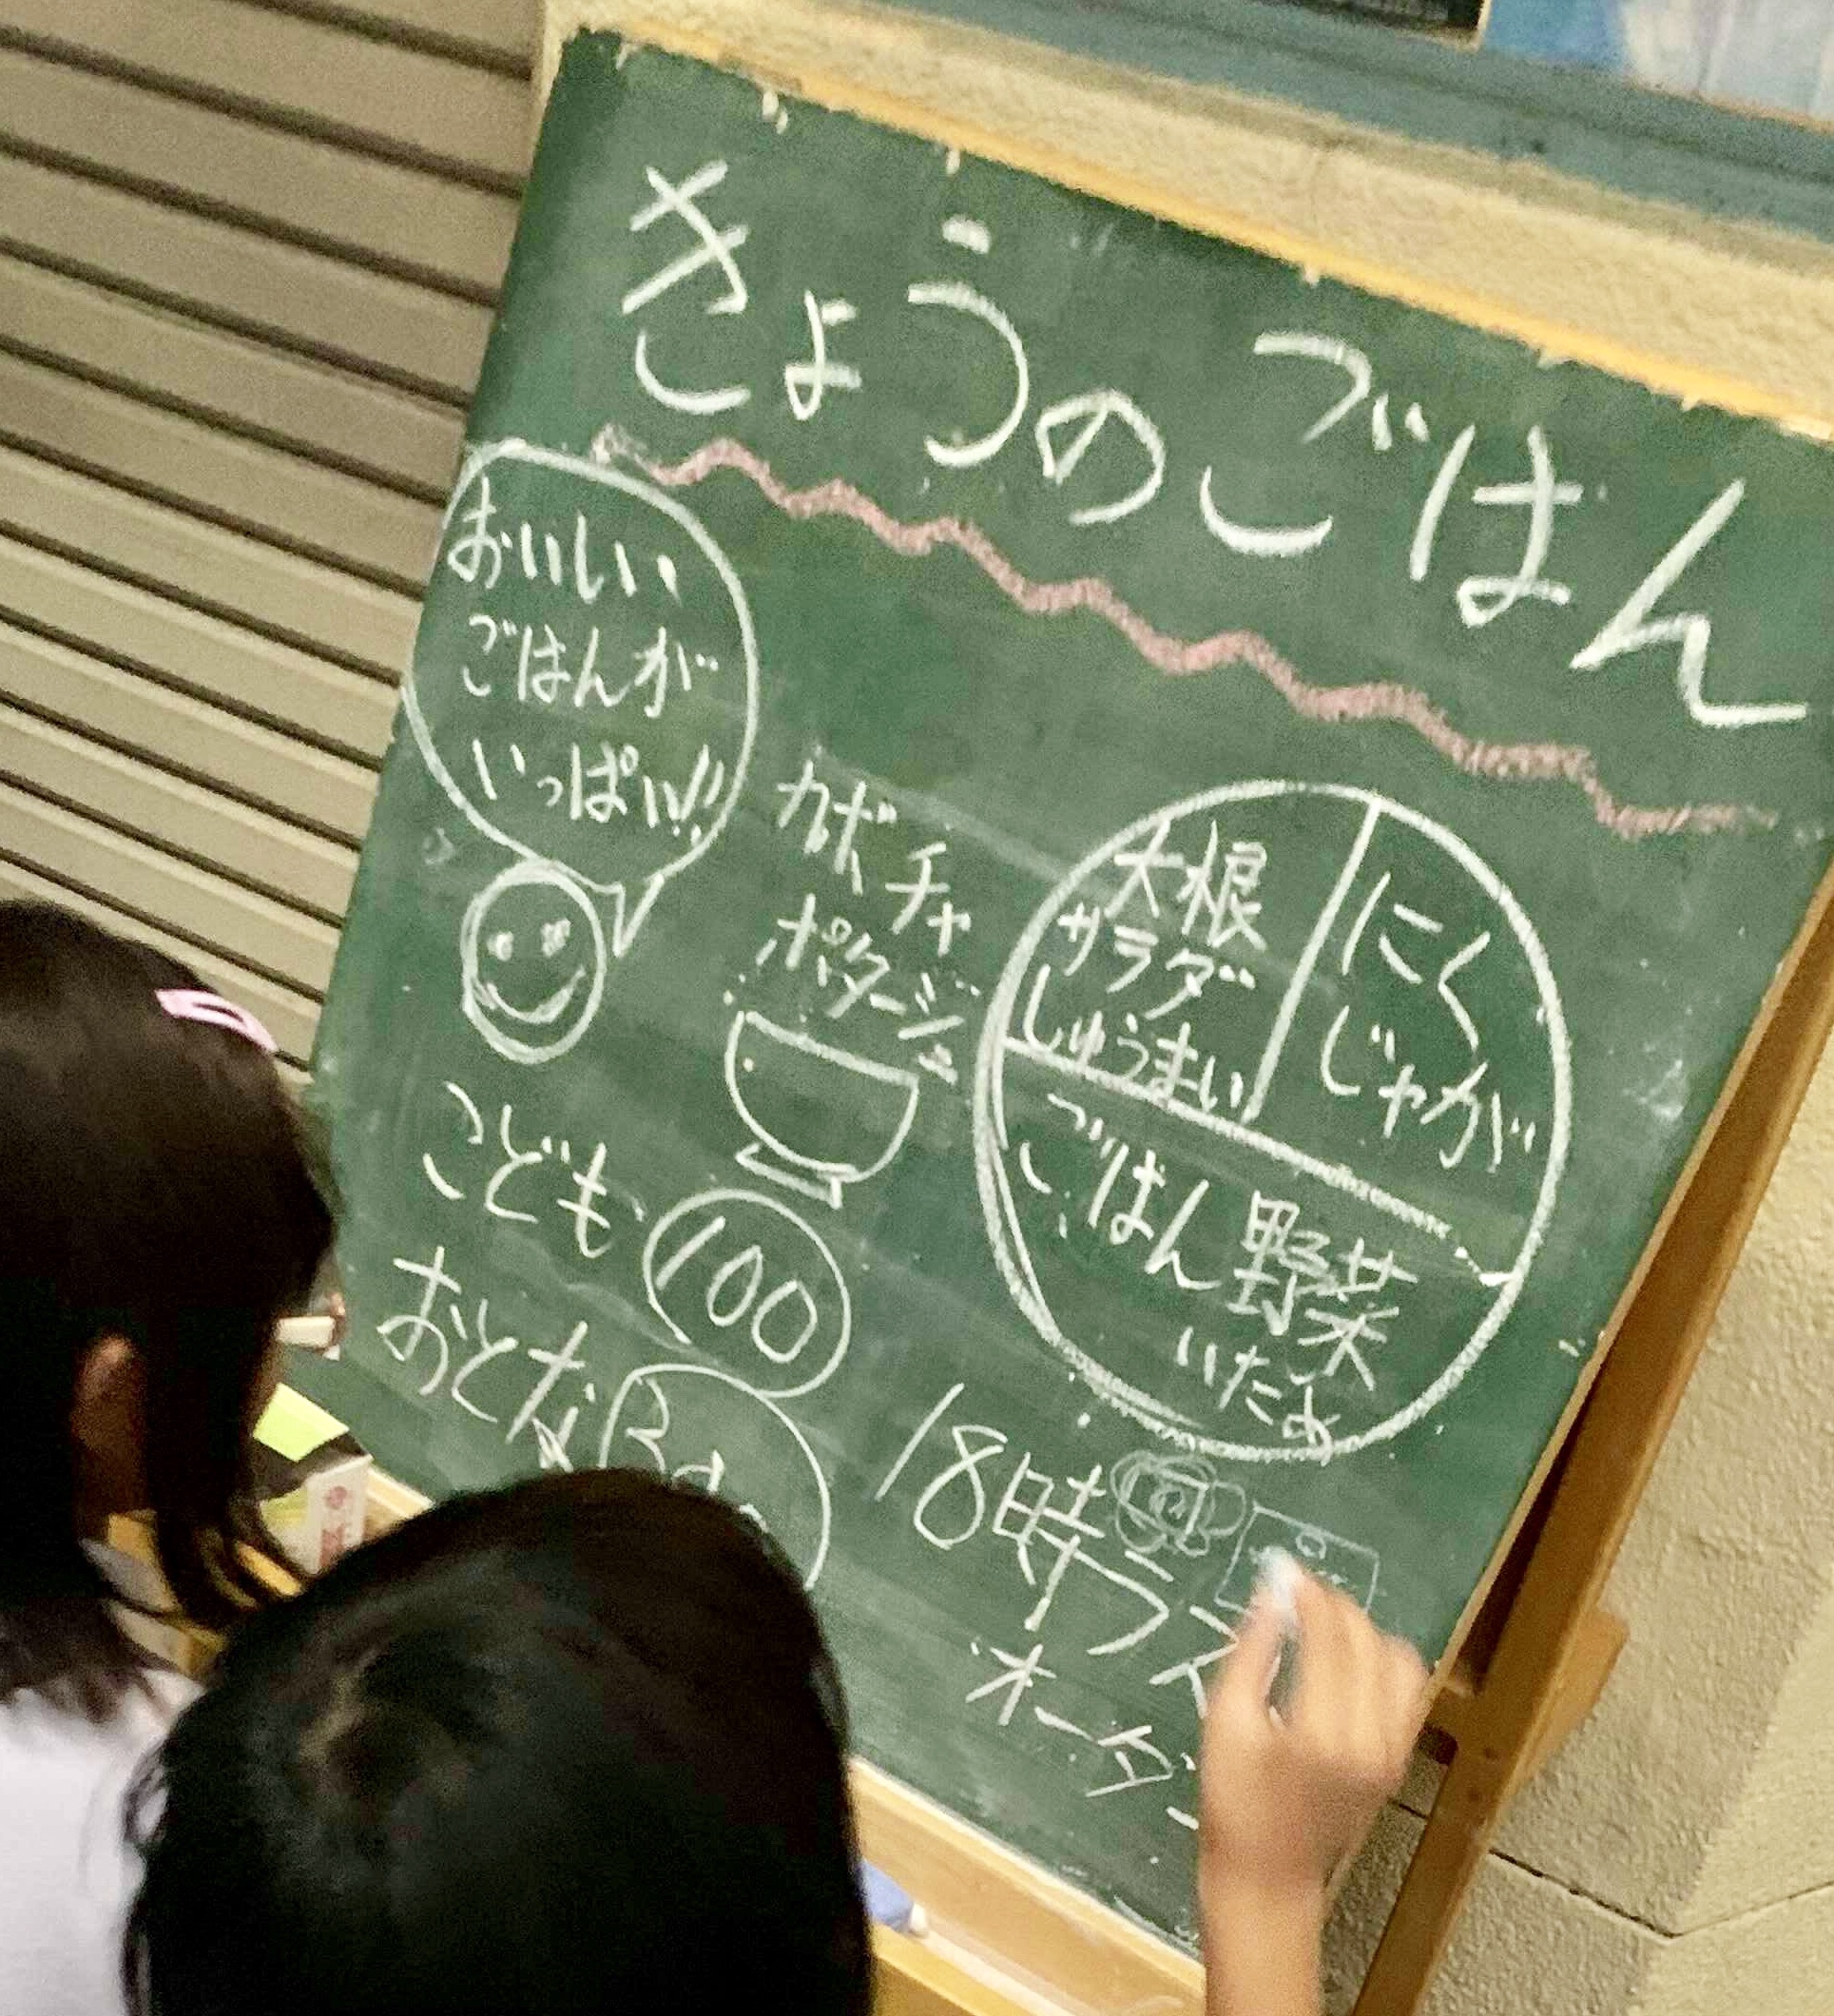 きょうのごはん
おいしい
ごはんが
いっぱい!!
カボチャ
ポタージュ
大根
サラダ
しゅうまい
にく
じゃが
ごはん 野菜
いため
こども 100
おとな
18時ラス
オーダー